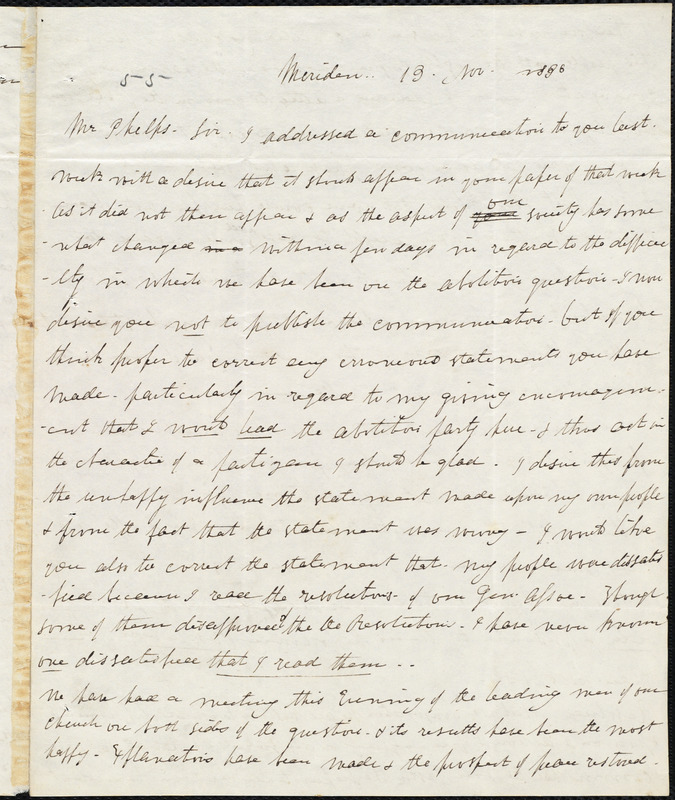 55
Meriden. 13. Nov. 1836
Mr Phelps. Sir. I addressed a communication to you last.
week with a desire that it should appear in your paper of that week
As it did not then appear & as the aspect of our society has some
-what changed within a few days in regard to the difficu
-lty in which we have been on the abolition question - I now
desire you not to publish the communication - but if you
think proper to correct any erroneous statements you have
made - particularly in regard to my giving encouragem-
-ent that I would lead the abolition party here - & thus act in
the character of a partizan I should be glad. I desire this from
the unhappy influence the statement made upon my own people
& from the fact that the statement was wrong - I would like
you also to correct the statement that my people were dissatis
-fied because I read the resolutions of our Gen. Asso - Though
some of them disapproved the Resolution. I have never known
one dissatisfied that I read them..
We have had a meeting this Evening of the leading men of our
Church on both sides of the question & its results have been the most
happy - Explanations have been made & the prospect of peace restored.